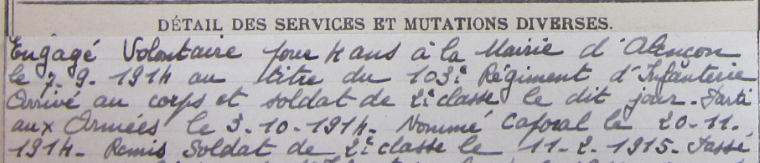 DÉTAIL DES SERVICES ET MUTATIONS DIVERSES.
Engagé Volontaire pour 4 ans à la Mairie d'Alençon
le 7.9.1914 au titre du 103e Régiment d'Infanterie
Arrivé au corps et soldat de 2e classe le dit jour. Parti
aux Armées le 3.10.1914. Nommé Caporal le 20.11.
1914. Remis Soldat de 2e classe le 11.2.1915. Passé